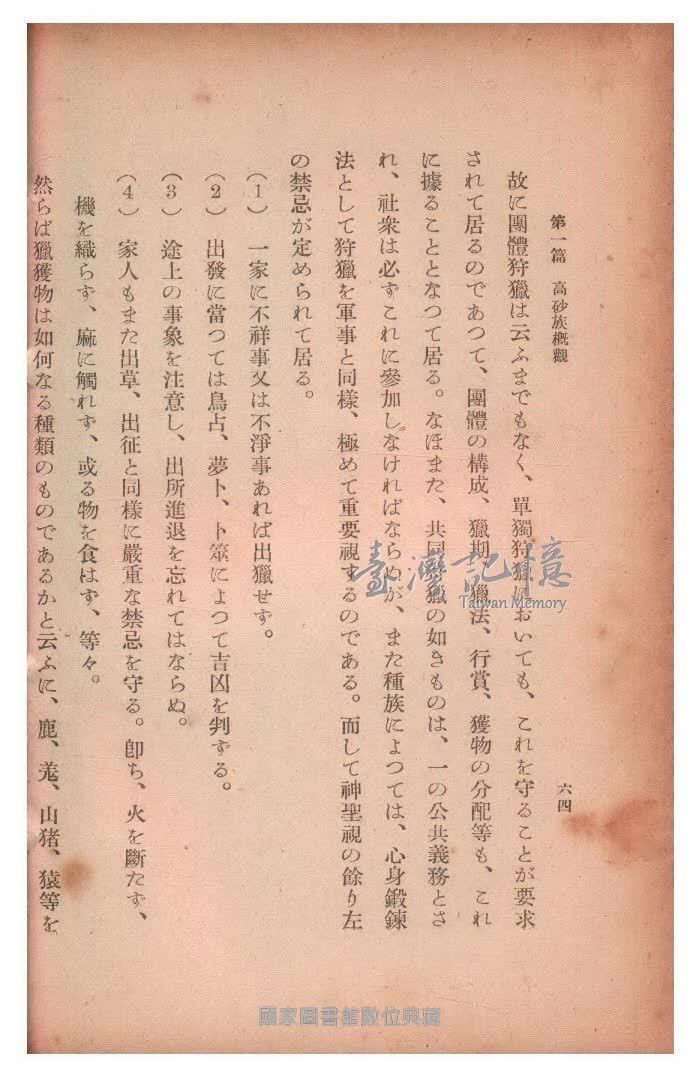 第一篇 高砂族概觀
六四
故に團體狩獵は云ふまでもなく、單獨狩獵においても、これを守ることが要求
されて居るのであつて、團體の構成、獵期、獵法、行賞、獲物の分配等も、これ
に據ることとなつて居る。なほまた、共同狩獵の如きものは、一の公共義務とさ
れ、社衆は必ずこれに參加しなければならぬが、また種族によつては、心身鍛鍊
法として狩獵を軍事と同樣、極めて重要視するのである。而して神聖視の餘り左
の禁忌が定められて居る。
(1) 一家に不祥事又は不淨事あれば出獵せず。
(2) 出發に當つては鳥占、夢卜、卜筮によつて吉凶を判ずる。
(3) 途上の事象を注意し、出所進退を忘れてはならぬ。
(4) 家人もまた出草、出征と同樣に嚴重な禁忌を守る。卽ち、火を斷たず、
機を織らず、麻に觸れず、或る物を食はず、等々。
然らば獵獲物は如何なる種類のものであるかと云ふに、鹿、羌、山猪、猿等を
臺灣記憶
Taiwan Memory
國家圖書館數位典藏